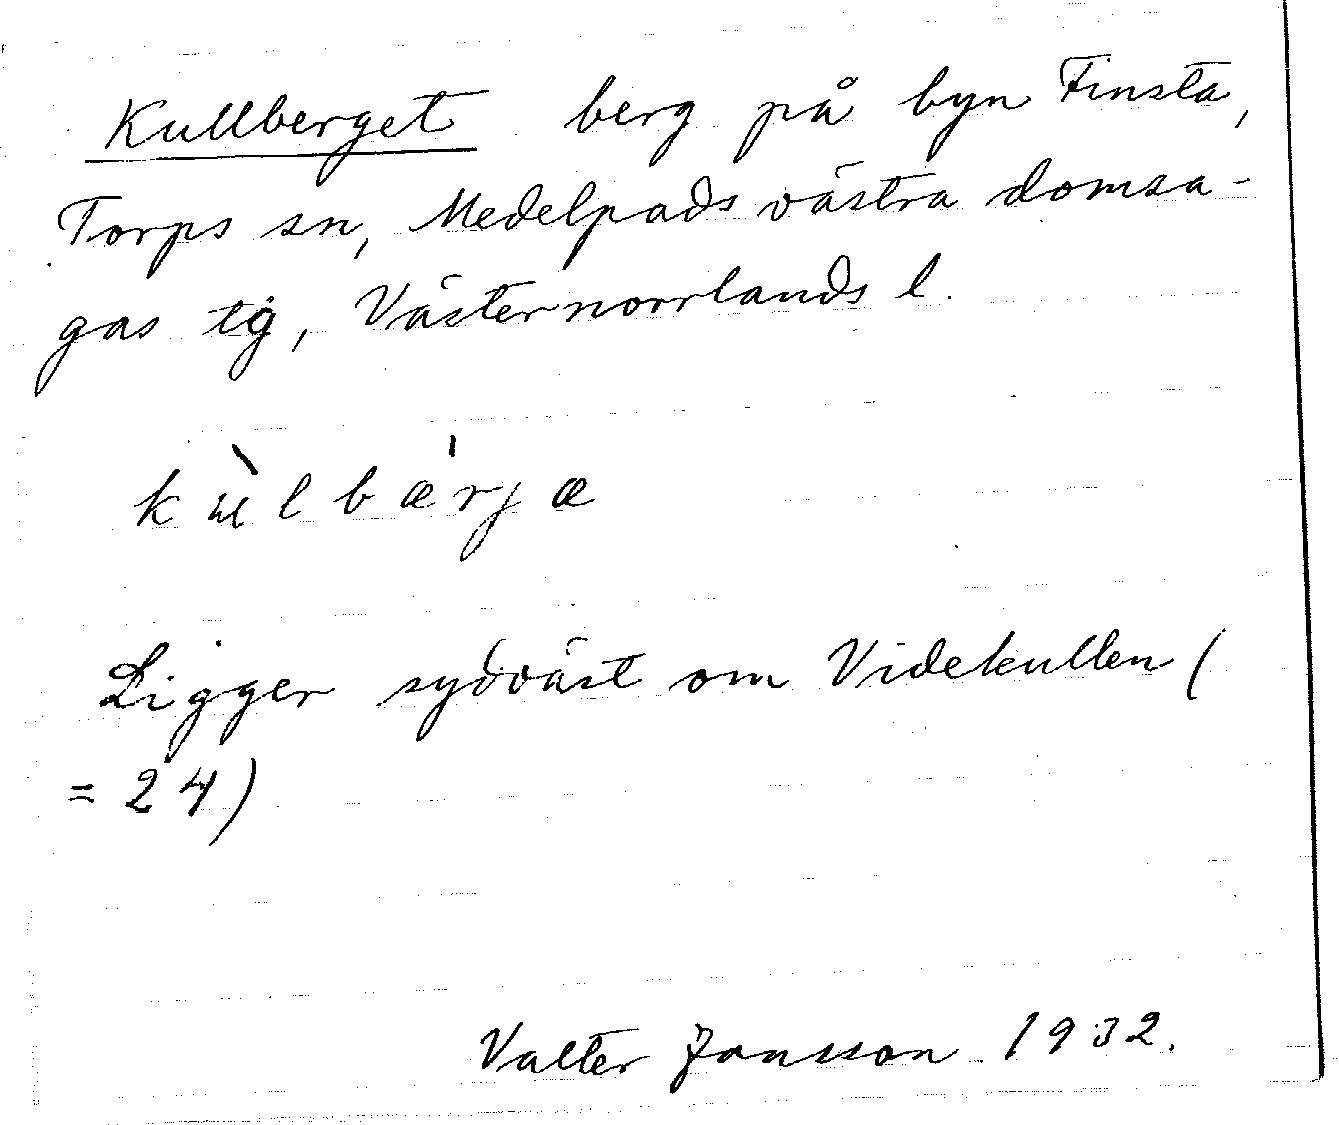 Kullberget berg på byn Finsta,
Torps sn, Medelpads västra domsa-
gas tg, Västernorrlands l.
kùlbæ'rjæ
Ligger sydväst om Videkullen (
= 24)
Valter Jansson 1932.